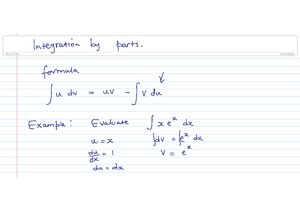 Integration by parts.
formula
∫ u dv = uv - ∫ v du
Example: Evaluate ∫ x e^x dx
u = x ∫dv = ∫e^x dx
du/dx = 1 v = e^x
du = dx